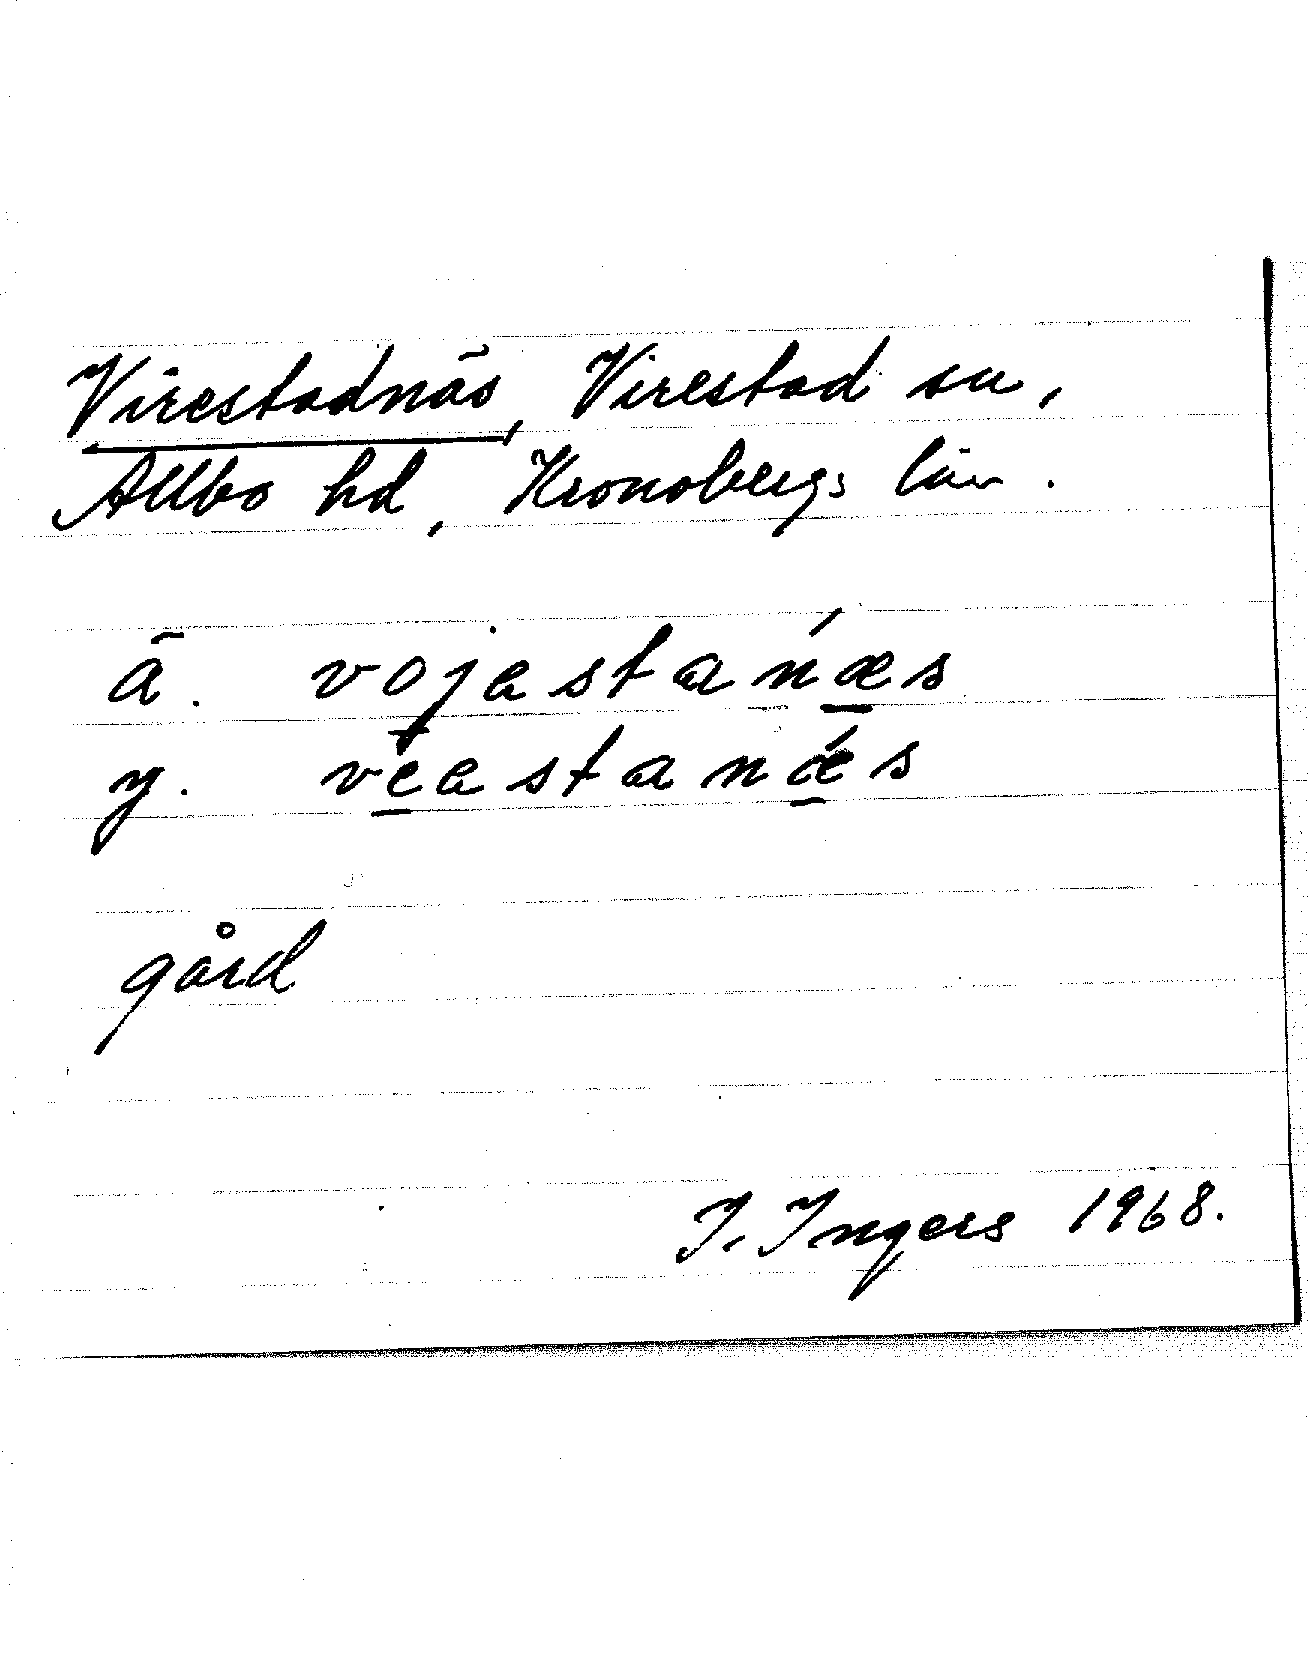 Virestadnäs, Virestad sn,
Allbo hd, Kronobergs län.
ä. vojestánæs
y. veestanǽs
gård
I. Ingers 1968.